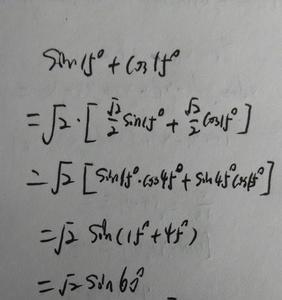 sin15°+cos15°
=√2·[√2/2 sin15°+√2/2 cos15°]
=√2[sin15°·cos45°+sin45°cos15°]
=√2 sin(15°+45°)
=√2 sin60°